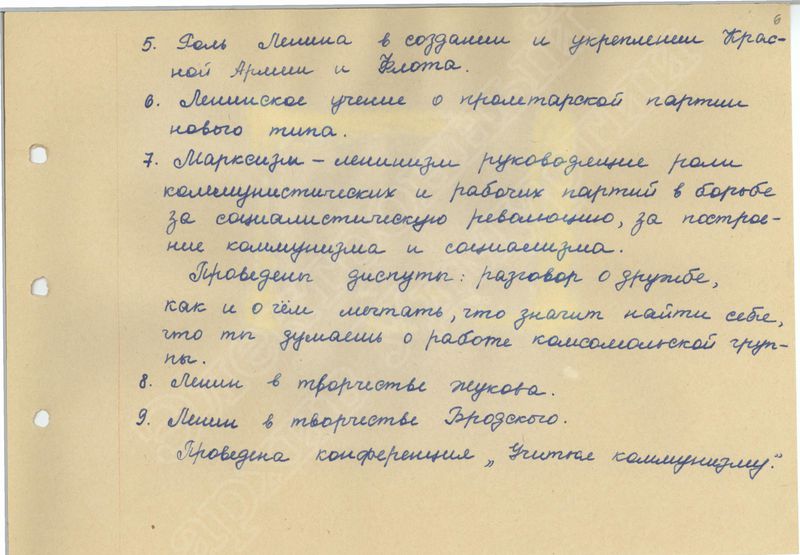 6
5. Роль Ленина в создании и укреплении Крас-
ной Армии и Флота.
6. Ленинское учение о пролетарской партии
нового типа.
7. Марксизм – ленинизм руководящие роли
коммунистических и рабочих партий в борьбе
за социалистическую революцию, за построе-
ние коммунизма и социализма.
Проведены диспуты: разговор о дружбе,
как и о чём мечтать, что значит найти себе,
что ты думаешь о работе комсомольской груп-
пы.
8. Ленин в творчестве Жукова.
9. Ленин в творчестве Бродского.
Проведена конференция „Учиться коммунизму".